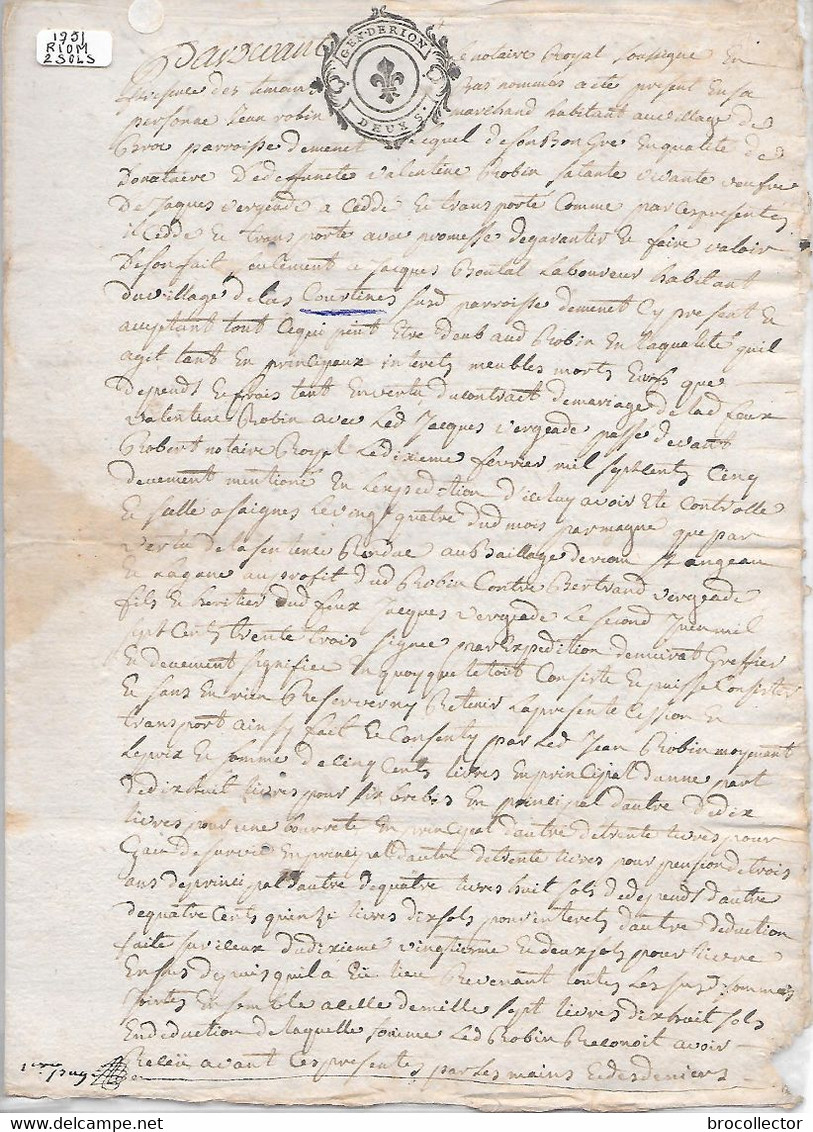 1751
RIOM
2 SOLS
GEN. DE RION
DEUX S.
Pardevant le notaire Royal soussigné En
presence des temoins bas nommes a eté present En sa
personne Jean robin marchand habitant au village de
Broc parroisse de menet lequel de son bon Gre En qualité de
Donataire De deffuncte valentine Robin sa tante vivante veufve
De Jaques vergeade a Cedde Et transporte Comme par Ces presentes
il Cedde Et transporte avec promesse de garantir Et faire valoir
De son fait seulement a Jacques Boutal Laboureur habitant
du village de las Courtines susd parroisse de menet Cy present Et
acceptant tout Ce qui peut Etre deub aud Robin En la qualité qu'il
agit tant En principaux interets meubles morts Et vifs que
depends Et frais tant En vertu du contract de mariage de lad feue
valentine Robin avec Led Jacques vergeade passe devant
Robert notaire Royal Le dixieme fevrier mil sept Cents Cinq
deuement mentioné En L'expedition d'iceluy avoir Eté Controlle
Et sellé a saignes Le vingt quatre dud mois par magne que par
vertu de la sentence Rendue au Bailliage de
au profit dud Robin Contre Bertrand vergeade
fils Et heritier dud feux Jacques vergeade Le second Juin mil
sept Cents trente trois signee par Expedition de murat Greffier
Et deuement signifiée En quoy que le tout Consiste Et puisse Consister
Et sans En rien Reserver ny Retenir La presente Cession Et
transport ainsy fait Et Consenty par Led Jean Robin moyenant
Le prix Et somme de Cinq Cents livres En principal d'une part
de dixhuit livres pour six brebis En principal d'autre de dix
livres pour une bourrete En principal d'autre de trente livres pour
Gain de survie En principal d'autre de trente livres pour pension de trois
ans de principal d'autre de quatre livres huit sols de depends d'autre
de quatre Cents quinze livres dix sols pour interets d'autre deduction
faite sur iceux du dixieme vingtieme Et deux sols pour livre
En sus depuis qu'il a Eu lieu Revenant toutes Les susd sommes
Jointes Ensemble a celle de mille sept livres dixhuit sols
En deduction de laquelle somme Led Robin Reconoit avoir
Receu avant Ces presentes par Les mains Et des deniers
1ere page
brocollector